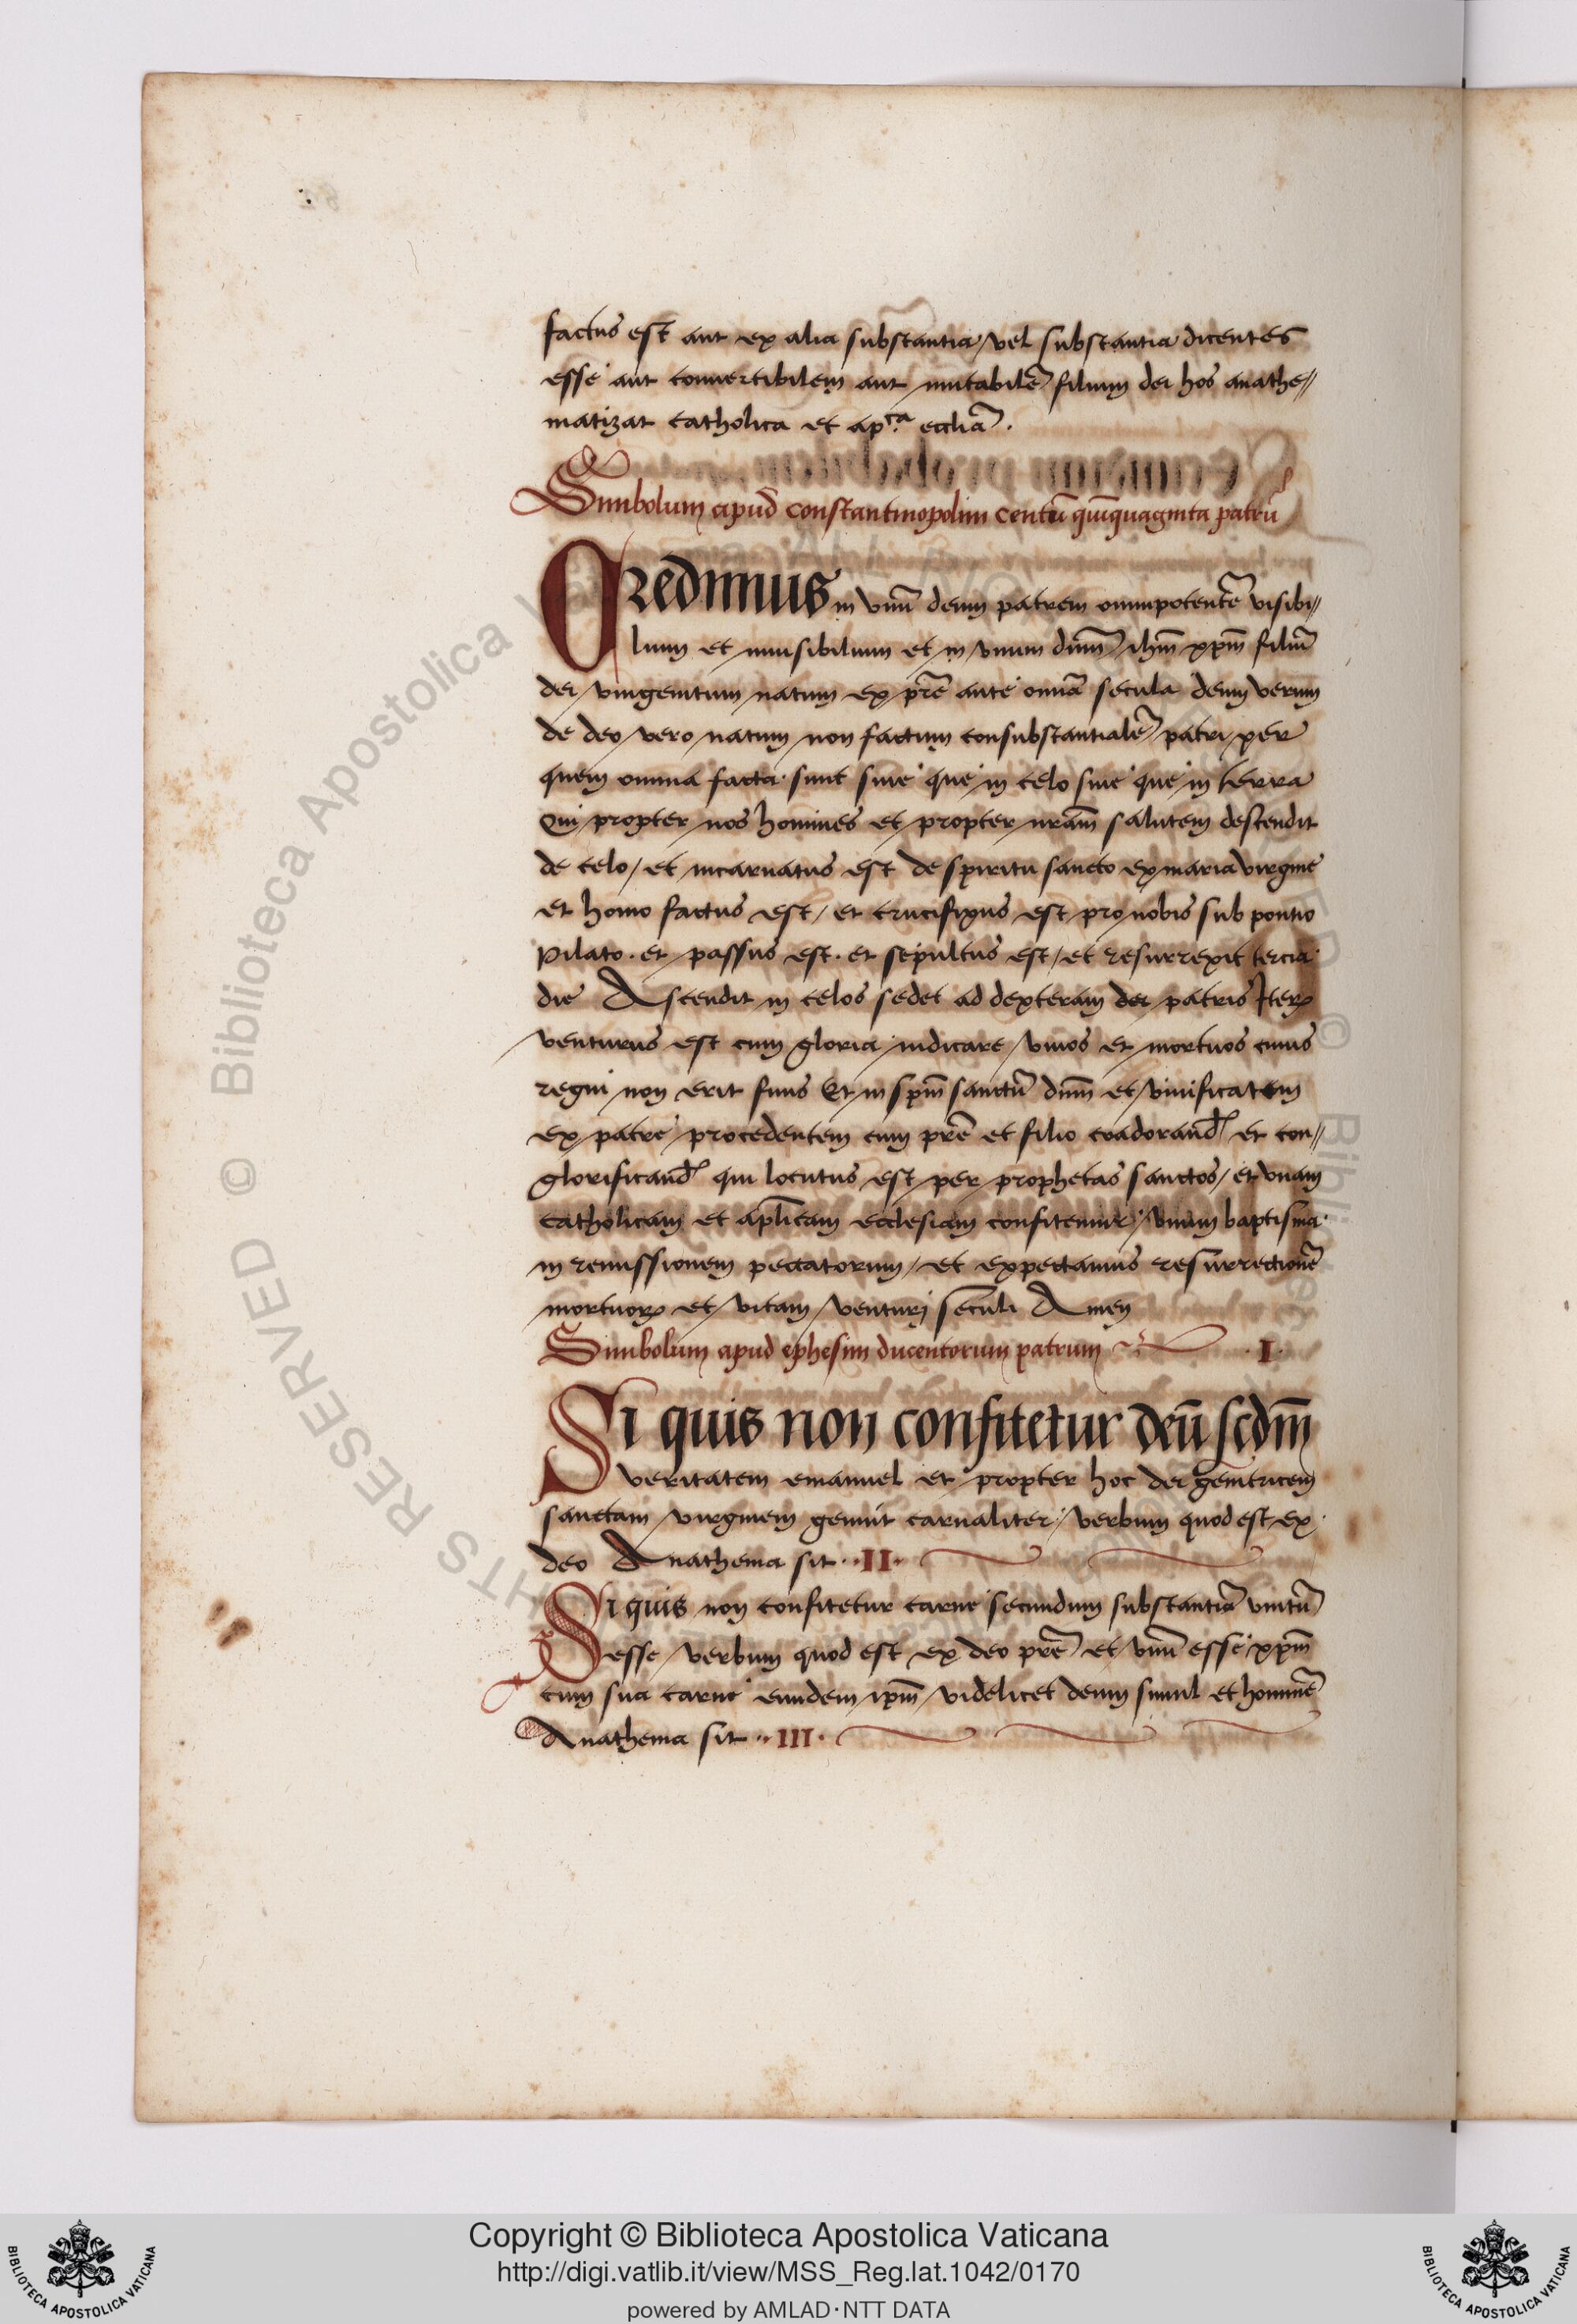 factus est aut ex alia substantia vel substantia dicentes
esse aut convertibilem aut mutabilē filium dei hos anathe//
matizat catholica et apᶜᵃ eccliā.
Simbolum apud constantinopolim centū quīquaginta patrū
Credimus in vnū deum patrem omnipotentē visibi//
lium et inuisibilium et in vnum dūm ihm̄ xpm̄ filiū
dei vnigenitum natum ex prē ante om̄ia secula deum verum
de deo vero natum non factum consubstantialē patri per
quem omnia facta sunt siue que in celo siue que in terra
Qui propter nos homines et propter nr̄am salutem descendit
de celo / et incarnatus est de spiritu sancto ex maria virgine
et homo factus est / et crucifixus est pro nobis sub pontio
Pilato . et passus est . et sepultus est / et resurrexit tercia
die Ascendit in celos sedet ad dexteram dei patris Iterꝝ
venturus est cum gloria iudicare viuos et mortuos cuius
regni non erit finis Et in spm̄ sanctū dnm̄ et viuificatem
ex patre procedentem cum prē et filio coadorand̄ et con//
glorificand̄ qui locutus est per prophetas sanctos / et vnam
catholicam et apl̄icam ecclesiam confitemur / vnum baptisma
in remissionem peccatorum / et expectamus resurrectionē
mortuorꝝ et vitam venturi seculi Amen
Simbolum apud ephesim ducentorum patrum .I.
Si quis non confitetur deū scdm̄
veritatem emanuel et propter hoc dei genitricem
sanctam virginem genuit carnaliter / verbum quod est ex
deo Anathema sit ..II.
Si quis non confitetur carne secundum substantiā vnitū
esse verbum quod est ex deo prē et vnū esse xpm̄
cum sua carne eundem ipm̄ videlicet deum simul et hominē
Anathema sit ..III.
© Biblioteca Apostolica
RESERVED
Copyright © Biblioteca Apostolica Vaticana
http://digi.vatlib.it/view/MSS_Reg.lat.1042/0170
powered by AMLAD·NTT DATA
BIBLIOTECA APOSTOLICA VATICANA
BIBLIOTECA APOSTOLICA VATICANA